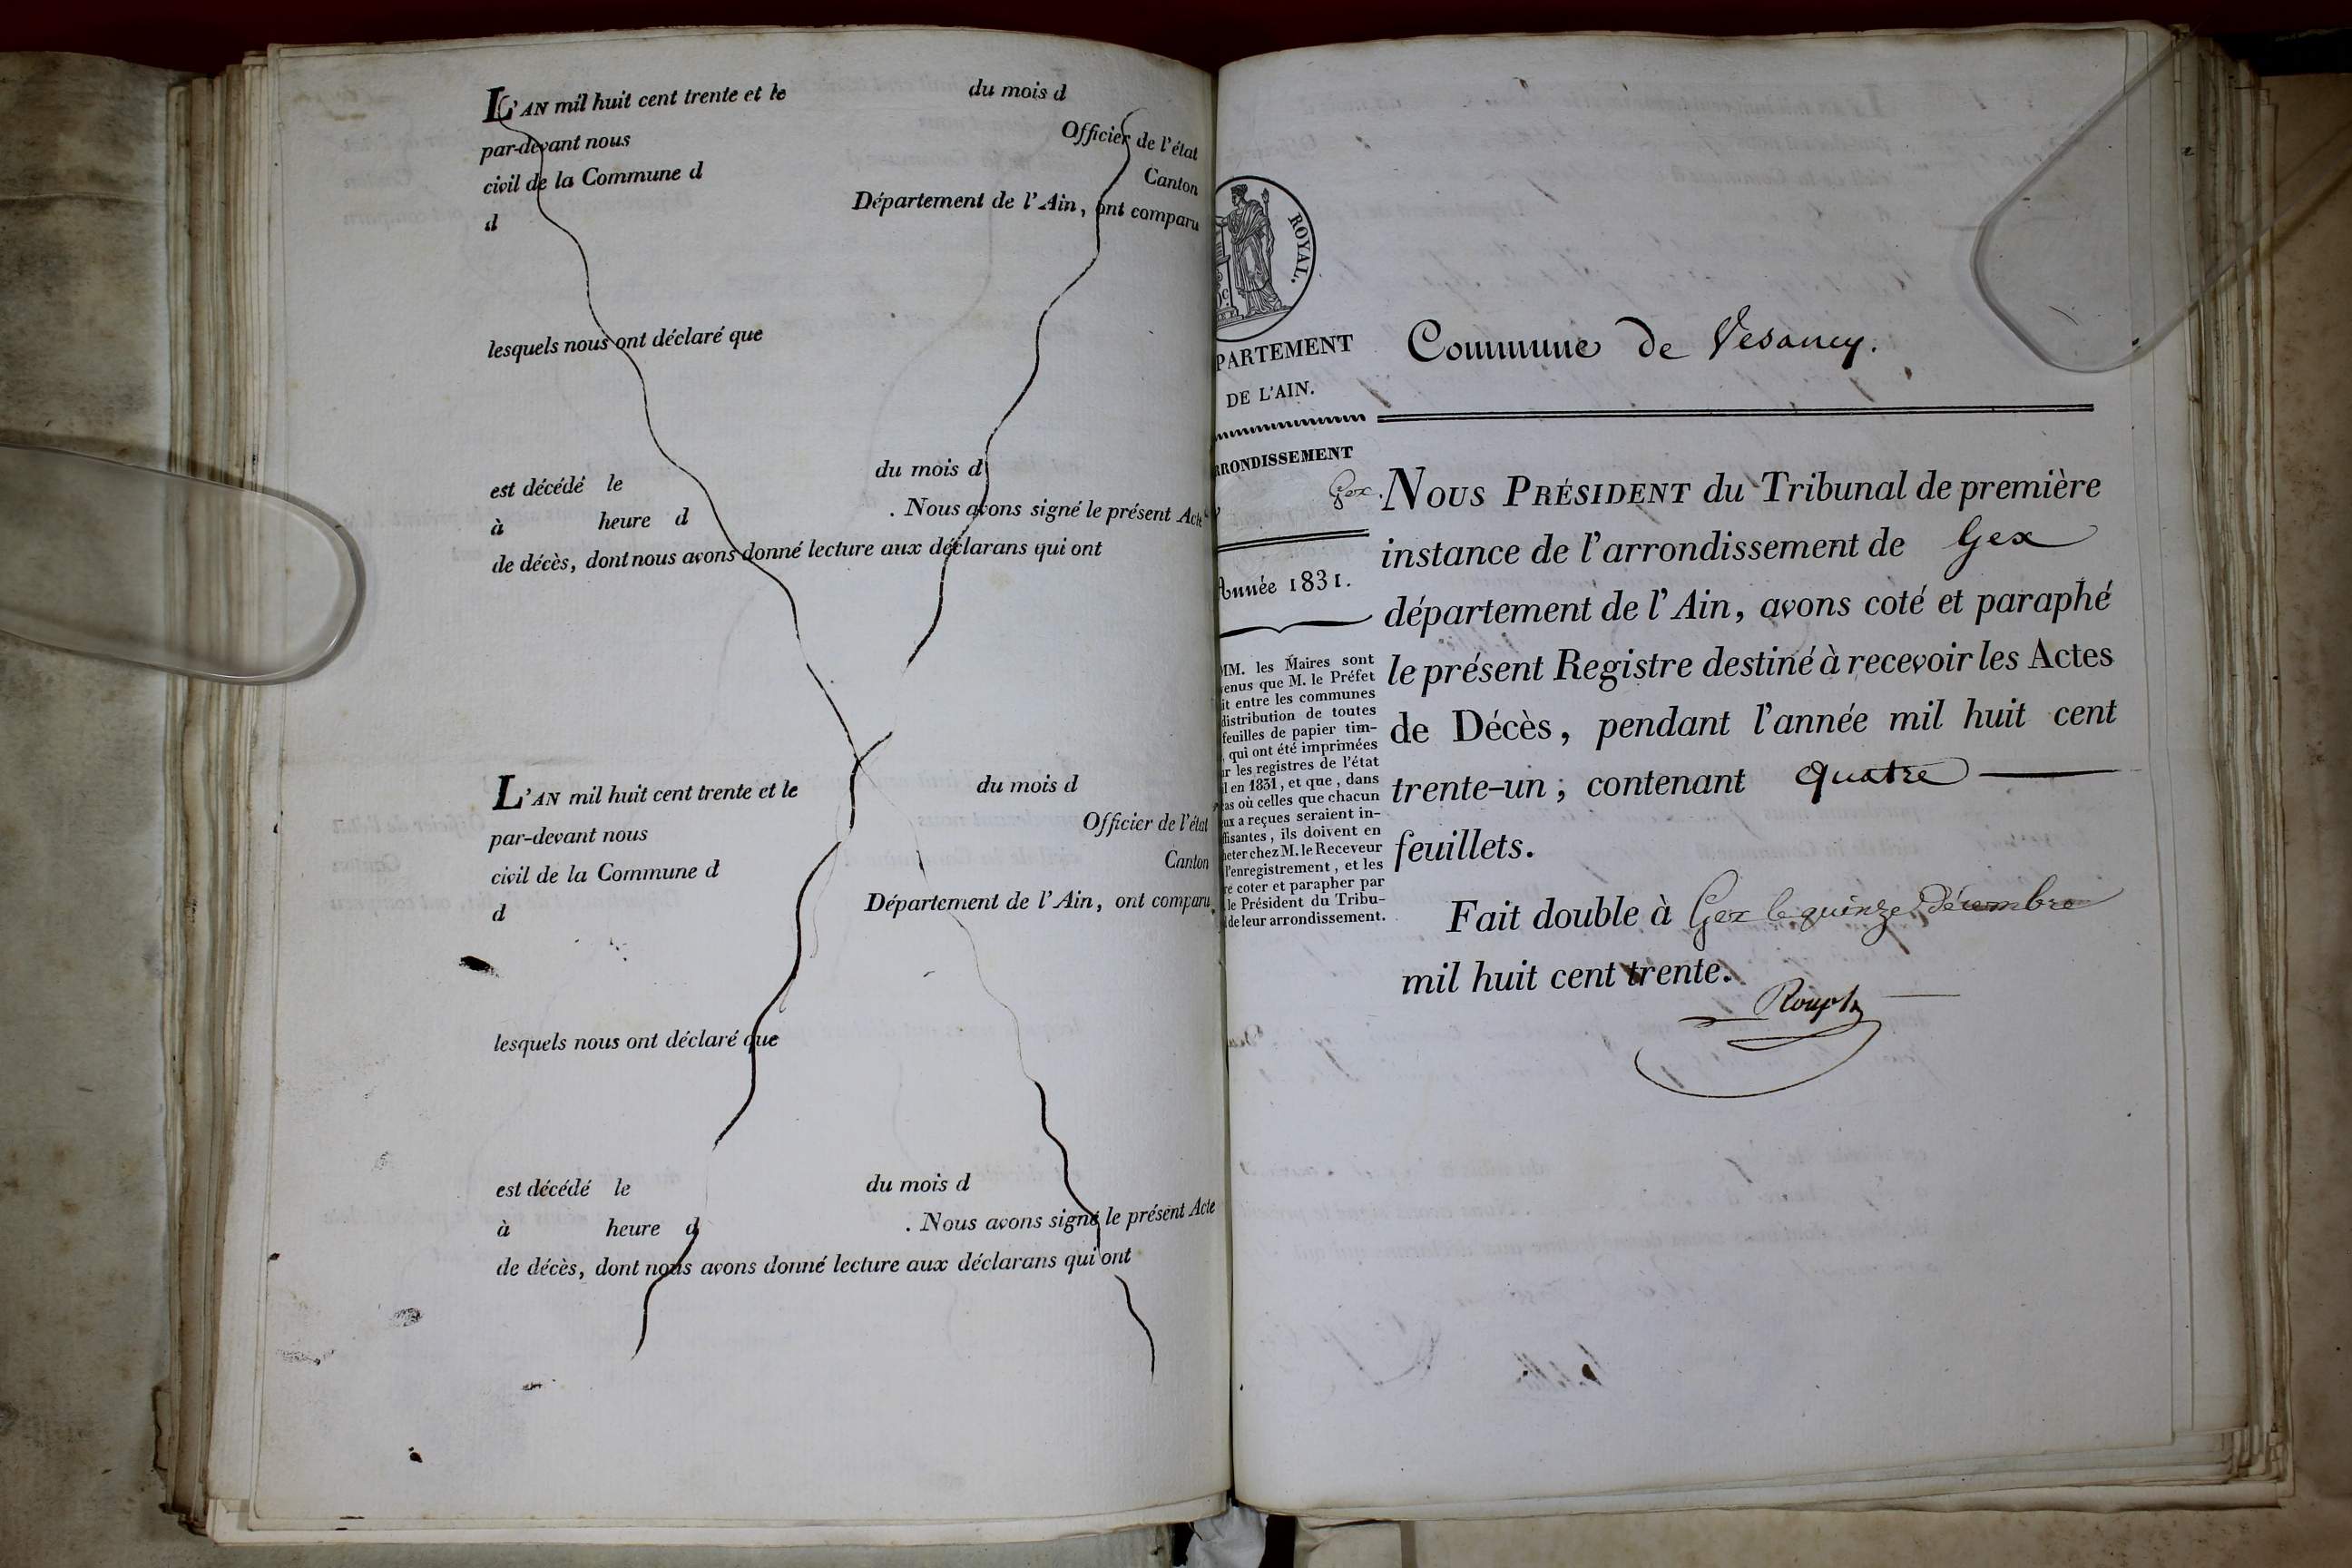 L'AN mil huit cent trente et le du mois d
par-devant nous Officier de l'état
civil de la Commune d Canton
d Département de l'Ain, ont comparu
lesquels nous ont déclaré que
est décédé le du mois d
à heure d . Nous avons signé le présent Acte
de décès, dont nous avons donné lecture aux déclarans qui ont
L'AN mil huit cent trente et le du mois d
par-devant nous Officier de l'état
civil de la Commune d Canton
d Département de l'Ain, ont comparu
lesquels nous ont déclaré que
est décédé le du mois d
à heure d . Nous avons signé le présent Acte
de décès, dont nous avons donné lecture aux déclarans qui ont
ROYAL.
PARTEMENT
DE L'AIN.
RRONDISSEMENT
Gex.
Année 1831.
MM. les Maires sont
venus que M. le Préfet
it entre les communes
distribution de toutes
feuilles de papier tim-
, qui ont été imprimées
ur les registres de l'état
il en 1831, et que, dans
cas où celles que chacun
eux a reçues seraient in-
ffisantes, ils doivent en
heter chez M. le Receveur
l'enregistrement, et les
re coter et parapher par
le Président du Tribu-
de leur arrondissement.
Commune de Vesancy.
NOUS PRÉSIDENT du Tribunal de première
instance de l'arrondissement de Gex
département de l'Ain, avons coté et paraphé
le présent Registre destiné à recevoir les Actes
de Décès, pendant l'année mil huit cent
trente-un; contenant quatre
feuillets.
Fait double à Gex le quinze Décembre
mil huit cent trente.